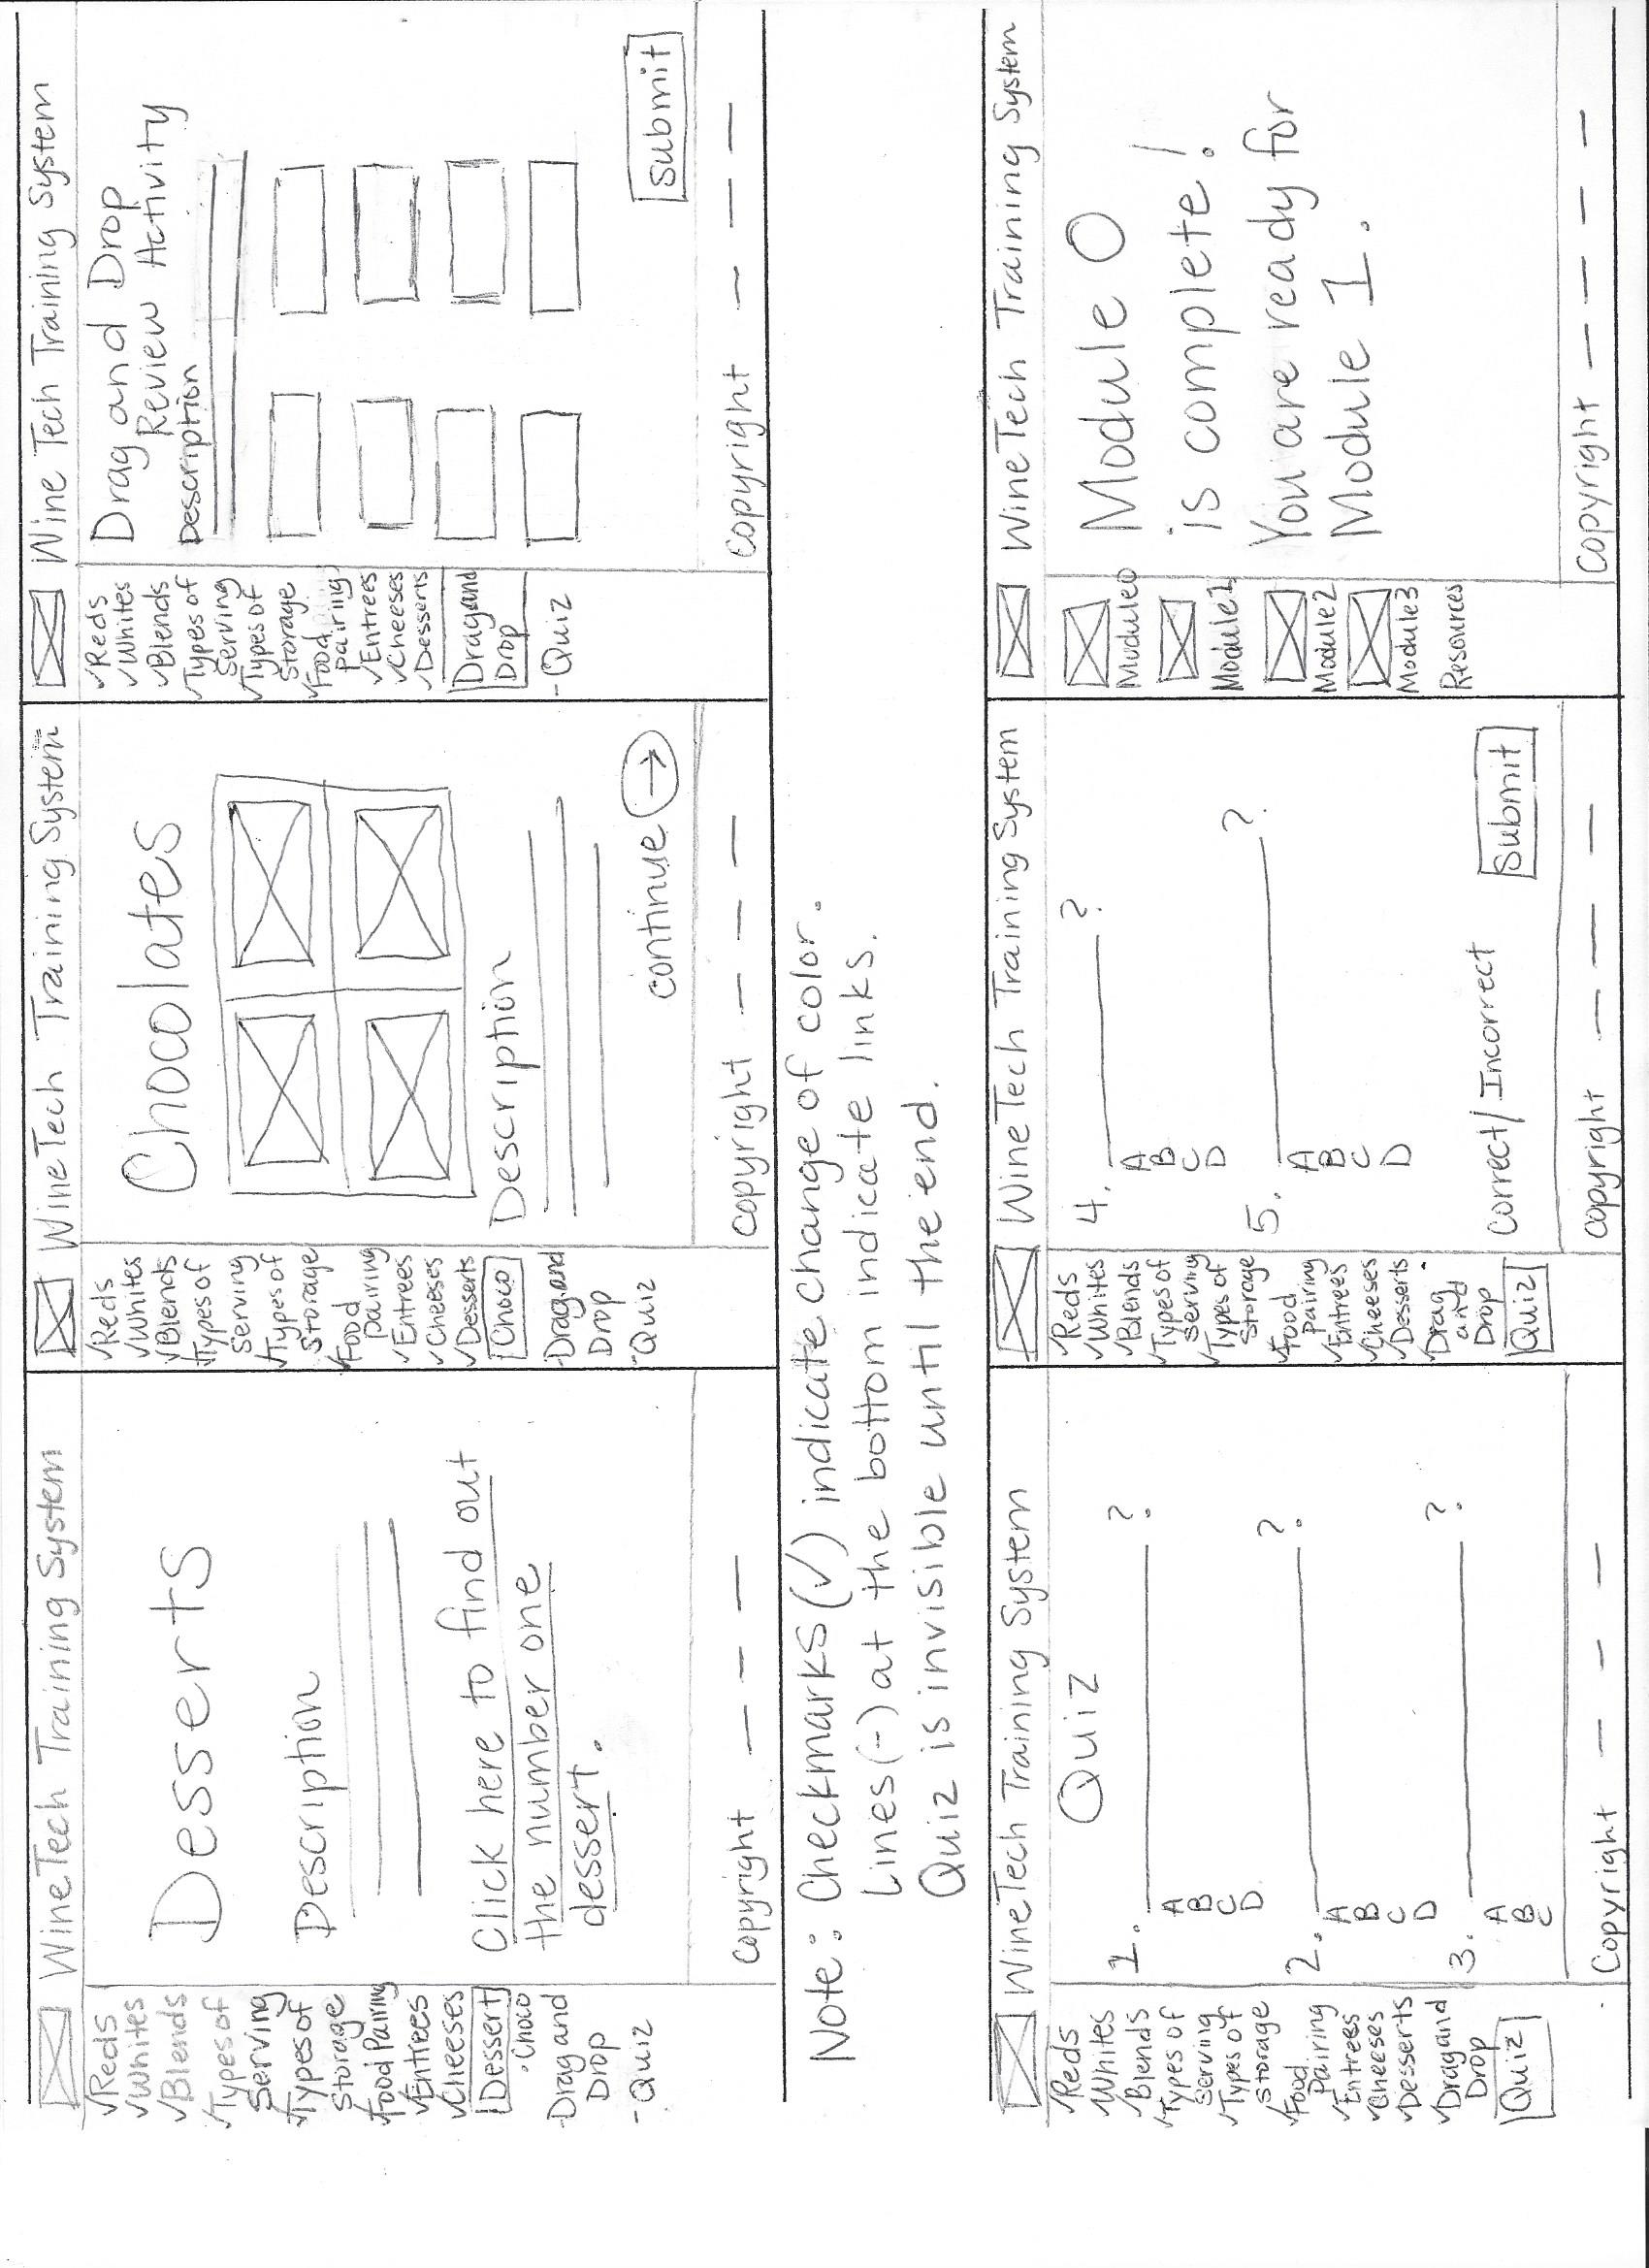 WineTech Training System
✓Reds
✓Whites
✓Blends
✓Types of
Serving
✓Types of
Storage
✓Food Pairing
✓Entrees
✓Cheeses
Dessert
•Choco
-Drag and
Drop
-Quiz
Desserts
Description
Click here to find out
the number one
dessert.
Copyright — — —
WineTech Training System
✓Reds
✓Whites
✓Blends
✓Types of
Serving
✓Types of
Storage
✓Food
pairing
✓Entrees
✓Cheeses
✓Desserts
Choco
-Drag and
Drop
-Quiz
Chocolates
Description
continue →
Copyright — — —
Wine Tech Training System
✓Reds
✓Whites
✓Blends
✓Types of
Serving
✓Types of
Storage
✓Food
pairing
✓Entrees
✓Cheeses
✓Desserts
Drag and
Drop
- Quiz
Drag and Drop
Review Activity
Description
Submit
Copyright — — —
Note: Checkmarks (✓) indicate change of color.
Lines (-) at the bottom indicate links.
Quiz is invisible until the end.
WineTech Training System
✓Reds
✓Whites
✓Blends
✓Types of
Serving
✓Types of
Storage
✓Food
Pairing
✓Entrees
✓Cheeses
✓Desserts
✓Drag and
Drop
Quiz
Quiz
1. ________ ?
A
B
C
D
2. ________ ?
A
B
C
D
3. ________ ?
A
B
C
Copyright — — —
WineTech Training System
✓Reds
✓Whites
✓Blends
✓Types of
Serving
✓Types of
Storage
✓Food
Pairing
✓Entrees
✓Cheeses
✓Desserts
✓Drag
and
Drop
Quiz
4. ________ ?
A
B
C
D
5. ________ ?
A
B
C
D
Correct/Incorrect
Submit
Copyright — — —
WineTech Training System
Module 0
Module 1
Module 2
Module 3
Resources
Module 0
is complete!
You are ready for
Module 1.
Copyright — — — —